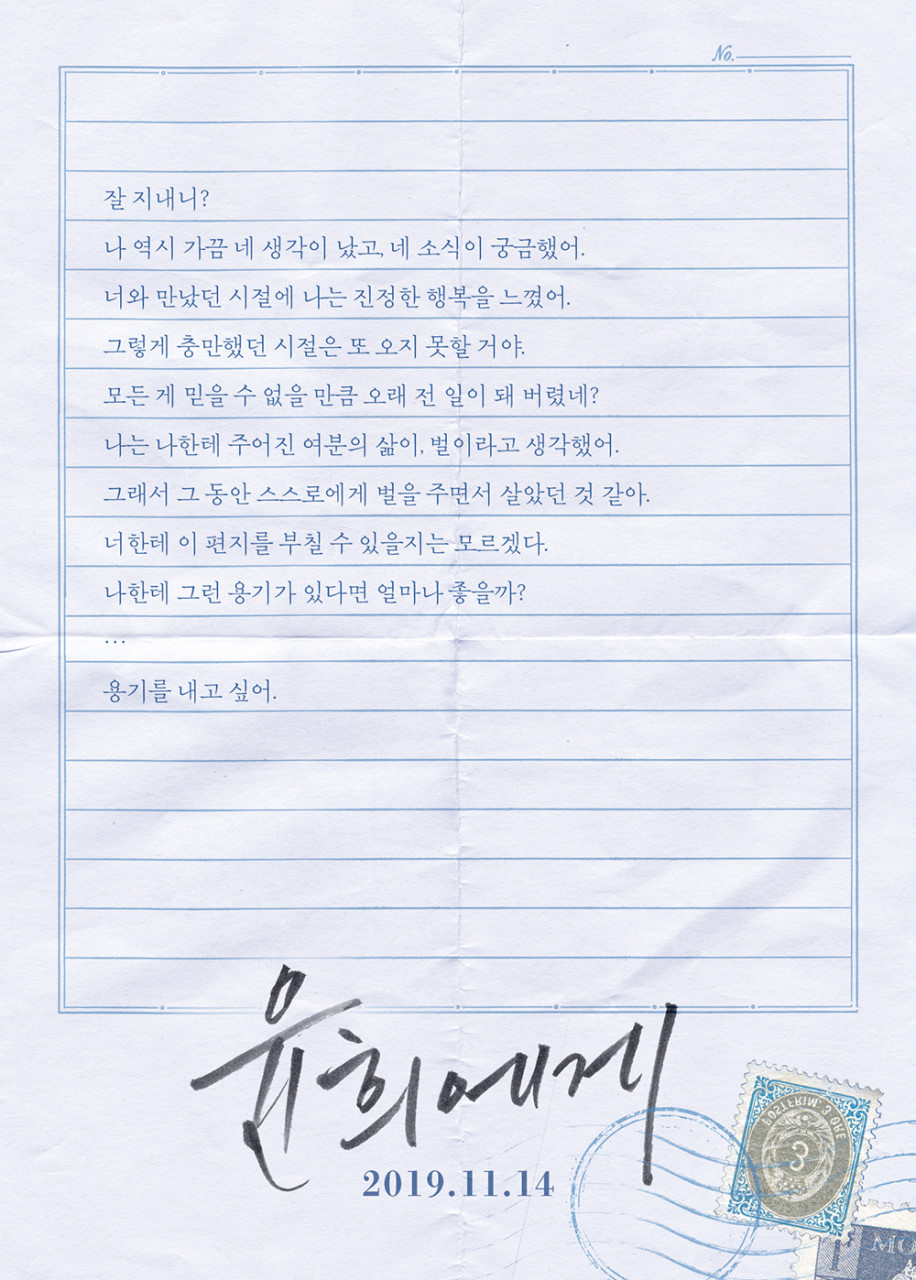 No.
잘 지내니?
나 역시 가끔 네 생각이 났고, 네 소식이 궁금했어.
너와 만났던 시절에 나는 진정한 행복을 느꼈어.
그렇게 충만했던 시절은 또 오지 못할 거야.
모든 게 믿을 수 없을 만큼 오래 전 일이 돼 버렸네?
나는 나한테 주어진 여분의 삶이, 벌이라고 생각했어.
그래서 그 동안 스스로에게 벌을 주면서 살았던 것 같아.
너한테 이 편지를 부칠 수 있을지는 모르겠다.
나한테 그런 용기가 있다면 얼마나 좋을까?
...
용기를 내고 싶어.
윤희에게
2019.11.14
POSTFRIM. 3 ØRE
3
1